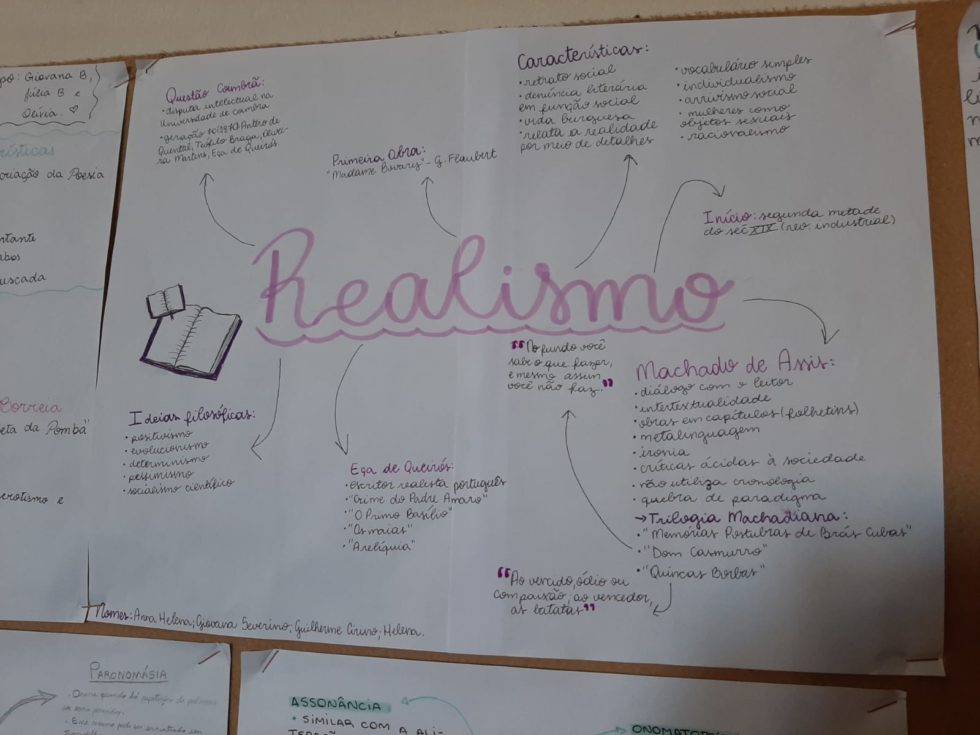 po: Giovana B,
Júlia B e
Olívia. ♡
rísticas
oriação da Poesia
rtante
mbos
uscada
Correia
eta da Pomba"
erotismo e
Questão Coimbrã:
• disputa intelectual na
Universidade de Coimbra
• geração 70 (1870) Antero de
Quental, Teófilo Braga, Olivei-
ra Martins, Eça de Queirós
Primeira Obra:
"Madame Bovary" - G. Flaubert
Características:
• retrato social
• denúncia literária
em função social
• vida burguesa
• relata a realidade
por meio de detalhes
• vocabulário simples
• individualismo
• arrivismo social
• mulheres como
objetos sexuais
• racionalismo
Início: segunda metade
do séc XIX (rev. industrial)
Realismo
"No fundo você
sabe o que fazer,
e mesmo assim
você não faz."
Machado de Assis:
• diálogo com o leitor
• intertextualidade
• obras em capítulos (folhetins)
• metalinguagem
• ironia
• críticas ácidas à sociedade
• não utiliza cronologia
• quebra de paradigma
→ Trilogia Machadiana:
• "Memórias Postubras de Brás Cubas"
• "Dom Casmurro"
• "Quincas Borbas"
"Ao vencido, ódio ou
compaixão; ao vencedor,
as batatas"
Ideias filosóficas:
• positivismo
• evolucionismo
• determinismo
• pessimismo
• socialismo científico
Eça de Queirós:
• escritor realista português
• "Crime do Padre Amaro"
• "O Primo Basílio"
• "Os maias"
• "A relíquia"
Nomes: Anna Helena; Giovana Severino; Guilherme Cirino; Helena.
PARONOMÁSIA
ASSONÂNCIA
• SIMILAR COM A ALI-